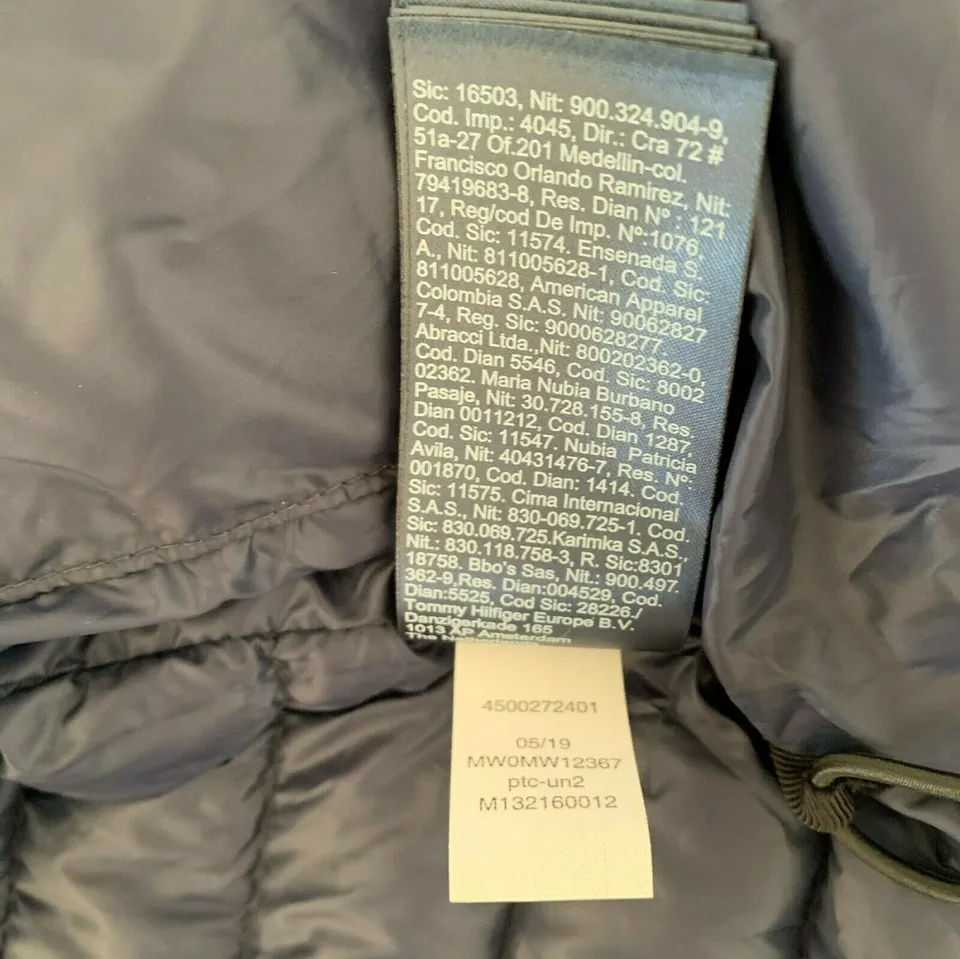 Sic: 16503, Nit: 900.324.904-9,
Cod. Imp.: 4045, Dir.: Cra 72 #
51a-27 Of.201 Medellin-col.
Francisco Orlando Ramirez, Nit:
79419683-8, Res. Dian Nº : 121
17, Reg/cod De Imp. Nº:1076,
Cod. Sic: 11574. Ensenada S.
A., Nit: 811005628-1, Cod. Sic:
811005628, American Apparel
Colombia S.A.S. Nit: 90062827
7-4, Reg. Sic: 9000628277,
Abracci Ltda.,Nit: 800202362-0,
Cod. Dian 5546, Cod. Sic: 8002
02362. Maria Nubia Burbano
Pasaje, Nit: 30.728.155-8, Res.
Dian 0011212, Cod. Dian 1287,
Cod. Sic: 11547. Nubia Patricia
Avila, Nit: 40431476-7, Res. Nº:
001870, Cod. Dian: 1414. Cod.
Sic: 11575. Cima Internacional
S.A.S., Nit: 830-069.725-1. Cod.
Sic: 830.069.725.Karimka S.A.S.,
Nit.: 830.118.758-3, R. Sic:8301
18758. Bbo's Sas, Nit.: 900.497.
362-9,Res. Dian:004529, Cod.
Dian:5525, Cod Sic: 28226./
Tommy Hilfiger Europe B.V.
Danzigerkade 165
1013 AP Amsterdam
The
4500272401
05/19
MW0MW12367
ptc-un2
M132160012